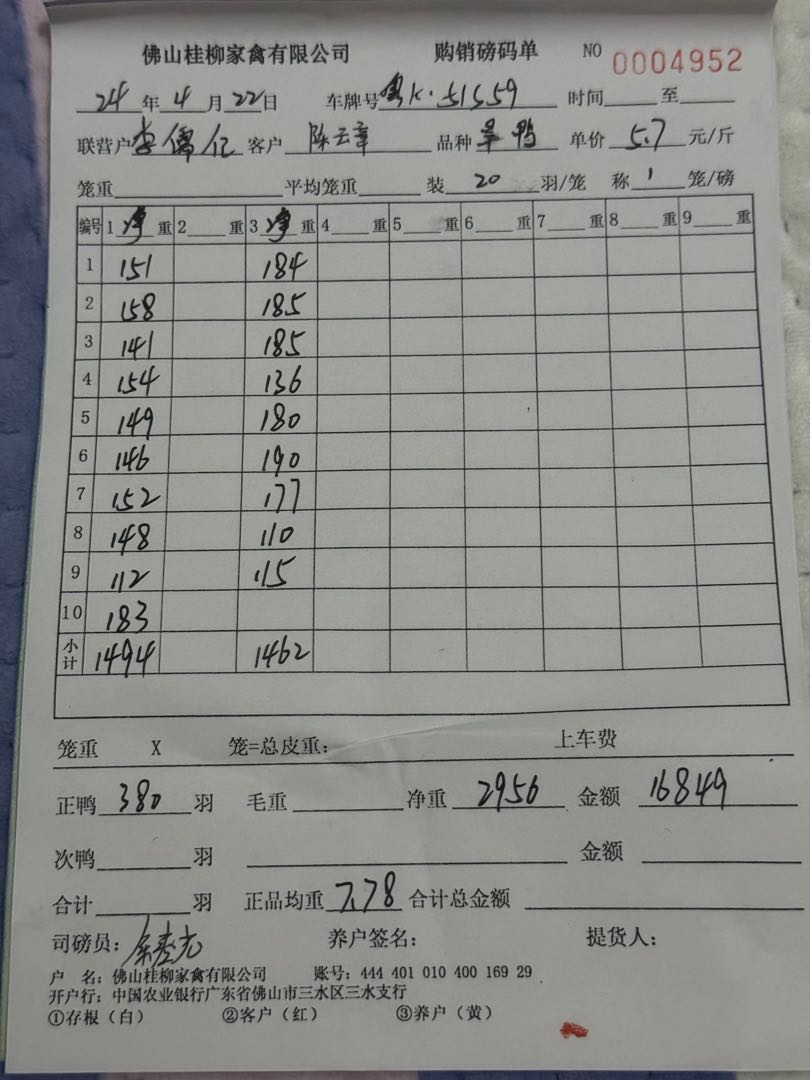 佛山桂柳家禽有限公司 购销磅码单 NO 0004952
24年4月22日 车牌号粤K·51559 时间 至
联营户 客户 陈云章 品种 鸭 单价 5.7 元/斤
笼重 平均笼重 装 20 羽/笼 称 1 笼/磅
编号 1净重 2 重 3净重 4 重 5 重 6 重 7 重 8 重 9 重
1 151 184
2 158 185
3 141 185
4 154 136
5 149 180
6 146 190
7 152 177
8 148 110
9 112 115
10 183
小计 1494 1462
笼重 X 笼=总皮重: 上车费
正鸭 380 羽 毛重 净重 2956 金额 16849
次鸭 羽 金额
合计 羽 正品均重 7.78 合计总金额
司磅员: 养户签名: 提货人:
户 名: 佛山桂柳家禽有限公司 账号: 444 401 010 400 169 29
开户行: 中国农业银行广东省佛山市三水区三水支行
①存根(白) ②客户(红) ③养户(黄)